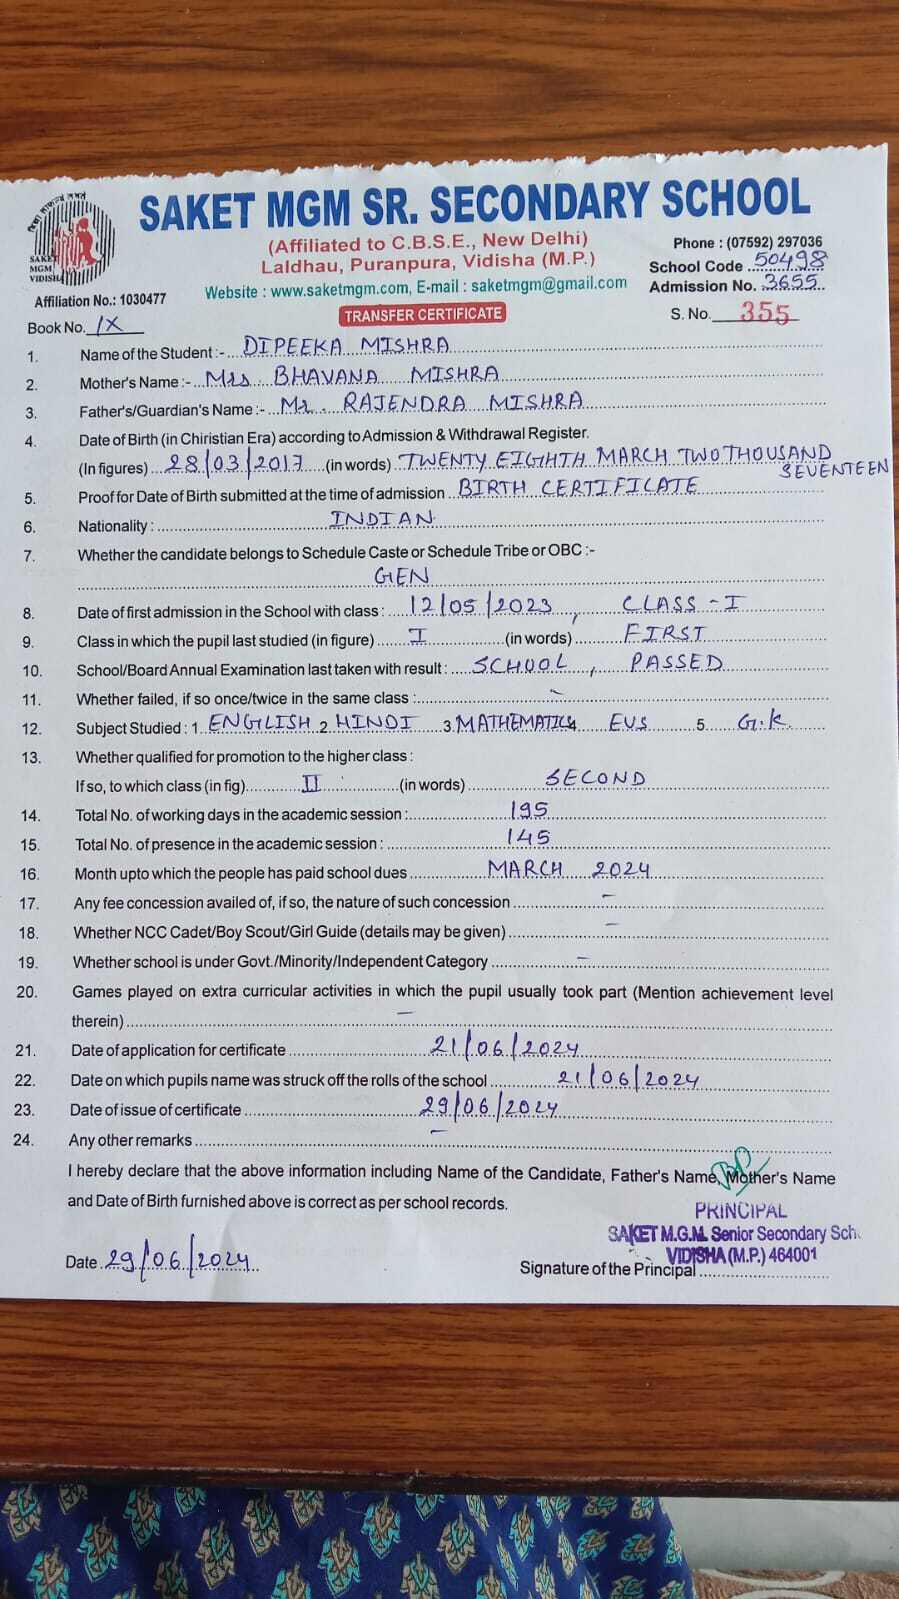 SAKET MGM SR. SECONDARY SCHOOL
(Affiliated to C.B.S.E., New Delhi)
Laldhau, Puranpura, Vidisha (M.P.)
Website : www.saketmgm.com, E-mail : saketmgm@gmail.com
SAKET
MGM
VIDISHA
Phone : (07592) 297036
School Code 50498
Admission No. 3655
Affiliation No.: 1030477
Book No. IX
TRANSFER CERTIFICATE
S. No. 355
1. Name of the Student :- DIPEEKA MISHRA
2. Mother's Name :- Mrs. BHAVANA MISHRA
3. Father's/Guardian's Name :- Mr. RAJENDRA MISHRA
4. Date of Birth (in Chiristian Era) according to Admission & Withdrawal Register.
(In figures) 28/03/2017 (in words) TWENTY EIGHTH MARCH TWO THOUSAND
SEVENTEEN
5. Proof for Date of Birth submitted at the time of admission BIRTH CERTIFICATE
6. Nationality : INDIAN
7. Whether the candidate belongs to Schedule Caste or Schedule Tribe or OBC :-
GEN
8. Date of first admission in the School with class : 12/05/2023, CLASS - I
9. Class in which the pupil last studied (in figure) I (in words) FIRST
10. School/Board Annual Examination last taken with result : SCHOOL, PASSED
11. Whether failed, if so once/twice in the same class : -
12. Subject Studied : 1. ENGLISH 2. HINDI 3. MATHEMATICS 4. EVS 5. G.K.
13. Whether qualified for promotion to the higher class :
If so, to which class (in fig) II (in words) SECOND
14. Total No. of working days in the academic session : 195
15. Total No. of presence in the academic session : 145
16. Month upto which the people has paid school dues MARCH 2024
17. Any fee concession availed of, if so, the nature of such concession -
18. Whether NCC Cadet/Boy Scout/Girl Guide (details may be given) -
19. Whether school is under Govt./Minority/Independent Category -
20. Games played on extra curricular activities in which the pupil usually took part (Mention achievement level
therein) -
21. Date of application for certificate 21/06/2024
22. Date on which pupils name was struck off the rolls of the school 21/06/2024
23. Date of issue of certificate 29/06/2024
24. Any other remarks -
I hereby declare that the above information including Name of the Candidate, Father's Name, Mother's Name
and Date of Birth furnished above is correct as per school records.
PRINCIPAL
SAKET M.G.M. Senior Secondary Scho
VIDISHA (M.P.) 464001
Date 29/06/2024
Signature of the Principal